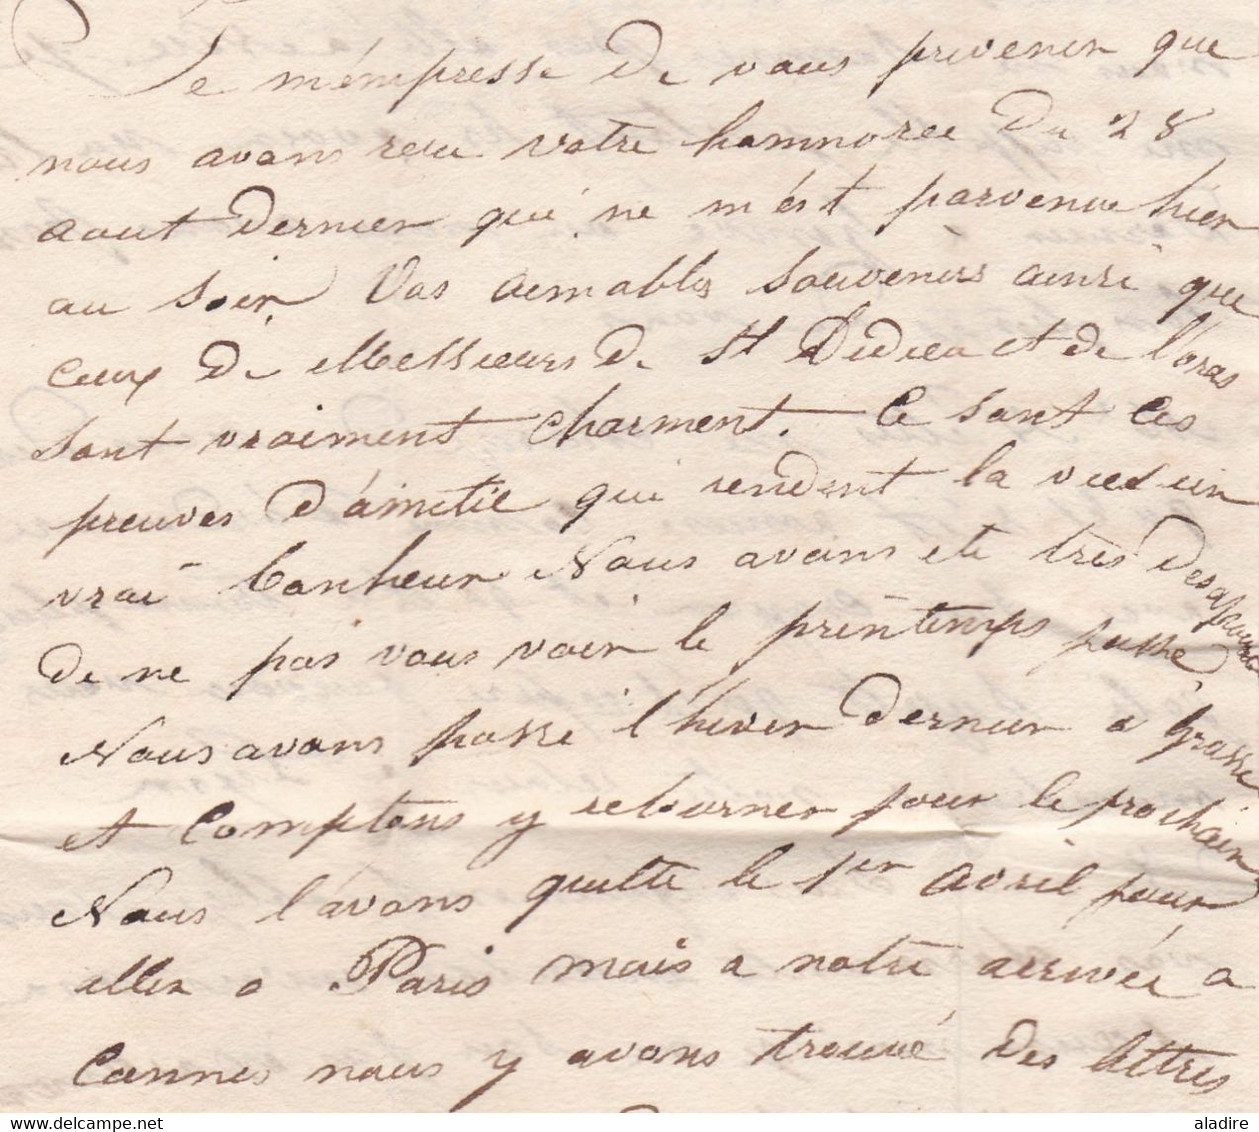 Je m'empresse de vous prevenir que
nous avons recu votre honnoree du 28
aout dernier qui ne m'est parvenue hier
au soir. Vos aimables souvenirs ainsi que
ceux de Messieurs de St Didier et de
sont vraiment charment. Ce sont ces
preuves d'amitie qui rendent la vie un
vrai bonheur Nous avons ete tres
de ne pas vous voir le printemps passe
Nous avons passe l'hiver dernier a Grasse
et Comptons y retourner pour le prochain
Nous l'avons quitte le 1er avril pour
aller a Paris mais a notre arrivée a
Cannes nous y avons trouvé des lettres
www.delcampe.net
aladire